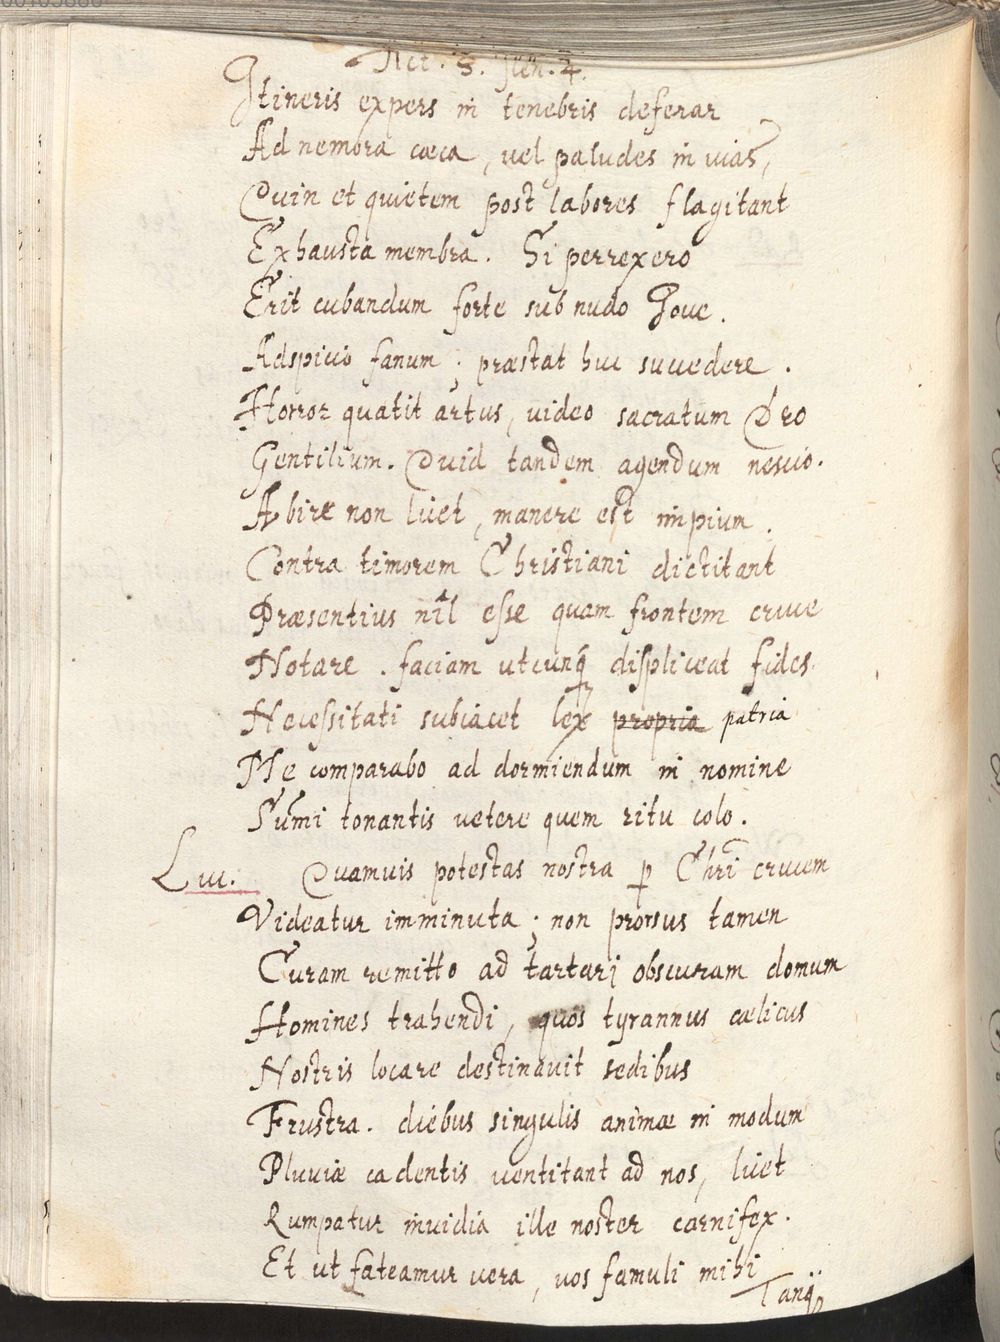 Act. 3. Scen. 4.
Itineris expers in tenebris deferar
Ad nemora cæca, vel paludes in vias,
Quin et quietem post labores flagitant
Exhausta membra. Si perrexero
Erit cubandum forte sub nudo Jove.
Adspicio fanum; præstat huc succedere.
Horror quatit artus, video sacratum Deo
Gentilium. Quid tandem agendum nescio.
Abire non licet, manere est impium.
Contra timorem Christiani dictitant
Præsentius nîl esse quam frontem cruce
Notare. faciam utcunq́ displiceat fides.
Necessitati subiacet lex propria patria
Me comparabo ad dormiendum in nomine
Sum̄i tonantis vetere quem ritu colo.
Luc. Quamvis potestas nostra p Chri̅ crucem
Videatur imminuta; non prorsus tamen
Curam remitto ad tartarj obscuram domum
Homines trahendi, quos tyrannus cælicus
Nostris locare destinavit sedibus
Frustra. diebus singulis animæ in modum
Pluviæ cadentis ventitant ad nos, licet
Rumpatur invidia ille noster carnifex.
Et ut fateamur vera, vos famuli mihi
Tanq́